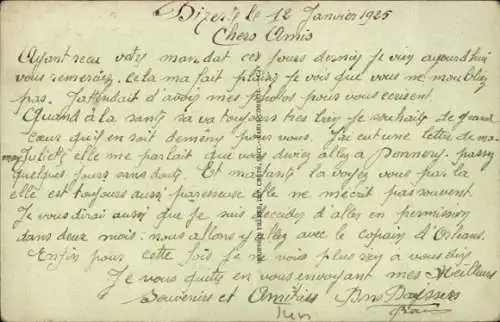 Bizerte le 12 Janvier 1925
Chers Amis
Ayant recu votre mandat ces jours dernier je vien aujourd'hui
vous remerciez. Cela ma fait plaisir je vois que vous ne m'oubliez
pas. J'attendait d'avois mes photos pour vous ecrirent.
Quand à la santé sa va toujours très bien je souhaite de grand
cœur qu'il en soit de même pour vous. J'ai eut une lettre de ma
Juliette elle me parlait que vous deviez allez a Donnery. passez
quelques jours sans doute. Et ma tante la voyez vous par la
elle est toujours aussi paresseuse elle ne m'ecrit pas souvent.
Je vous dirais aussi que je suis decidez d'aller en permission
dans deux mois. nous allons y allez avec le copain d'Orleans.
Enfin pour cette fois je ne vois plus rien a vous dire
Je vous quitte en vous envoyant mes Meilleurs
Souvenirs et Amitiés